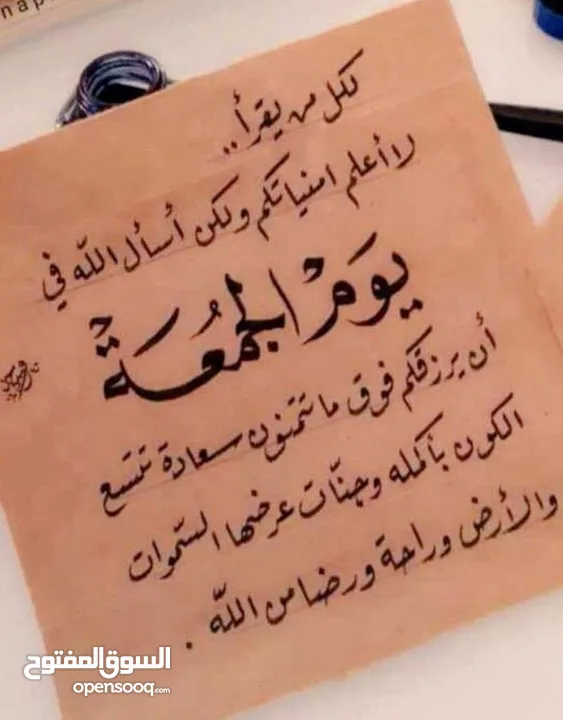 nap
لكل من يقرأ..
لا أعلم امنياتكم ولكن أسأل الله في
يَومْ الجمُعَةْ
أن يرزقكم فوق ما تتمنون سعادة تتسع
الكون بأكمله وجنّات عرضها السّموات
والأرض وراحة ورضا من اللّه .
السوق المفتوح
opensooq.com